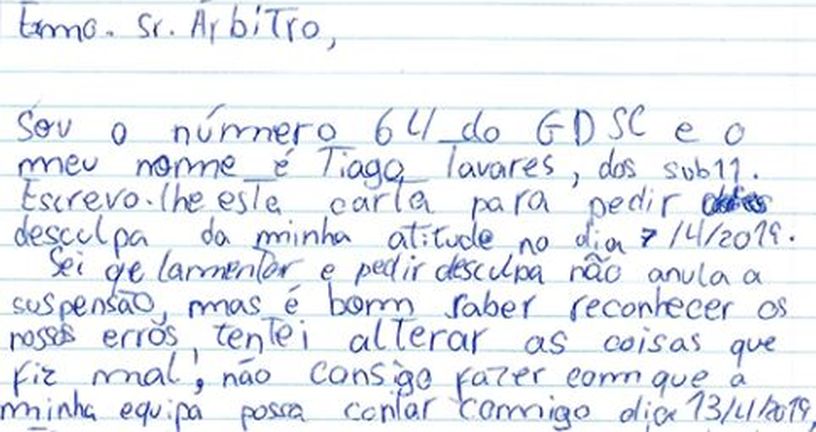 Exmo. Sr. Árbitro,
Sou o número 64 do GDSC e o
meu nome é Tiago Tavares, dos sub11.
Escrevo-lhe esta carta para pedir
desculpa da minha atitude no dia 7/4/2019.
Sei qe lamentar e pedir desculpa não anula a
suspensão, mas é bom saber reconhecer os
nossos erros, tentei alterar as coisas que
fiz mal, não consigo fazer com que a
minha equipa possa contar comigo dia 13/4/2019,